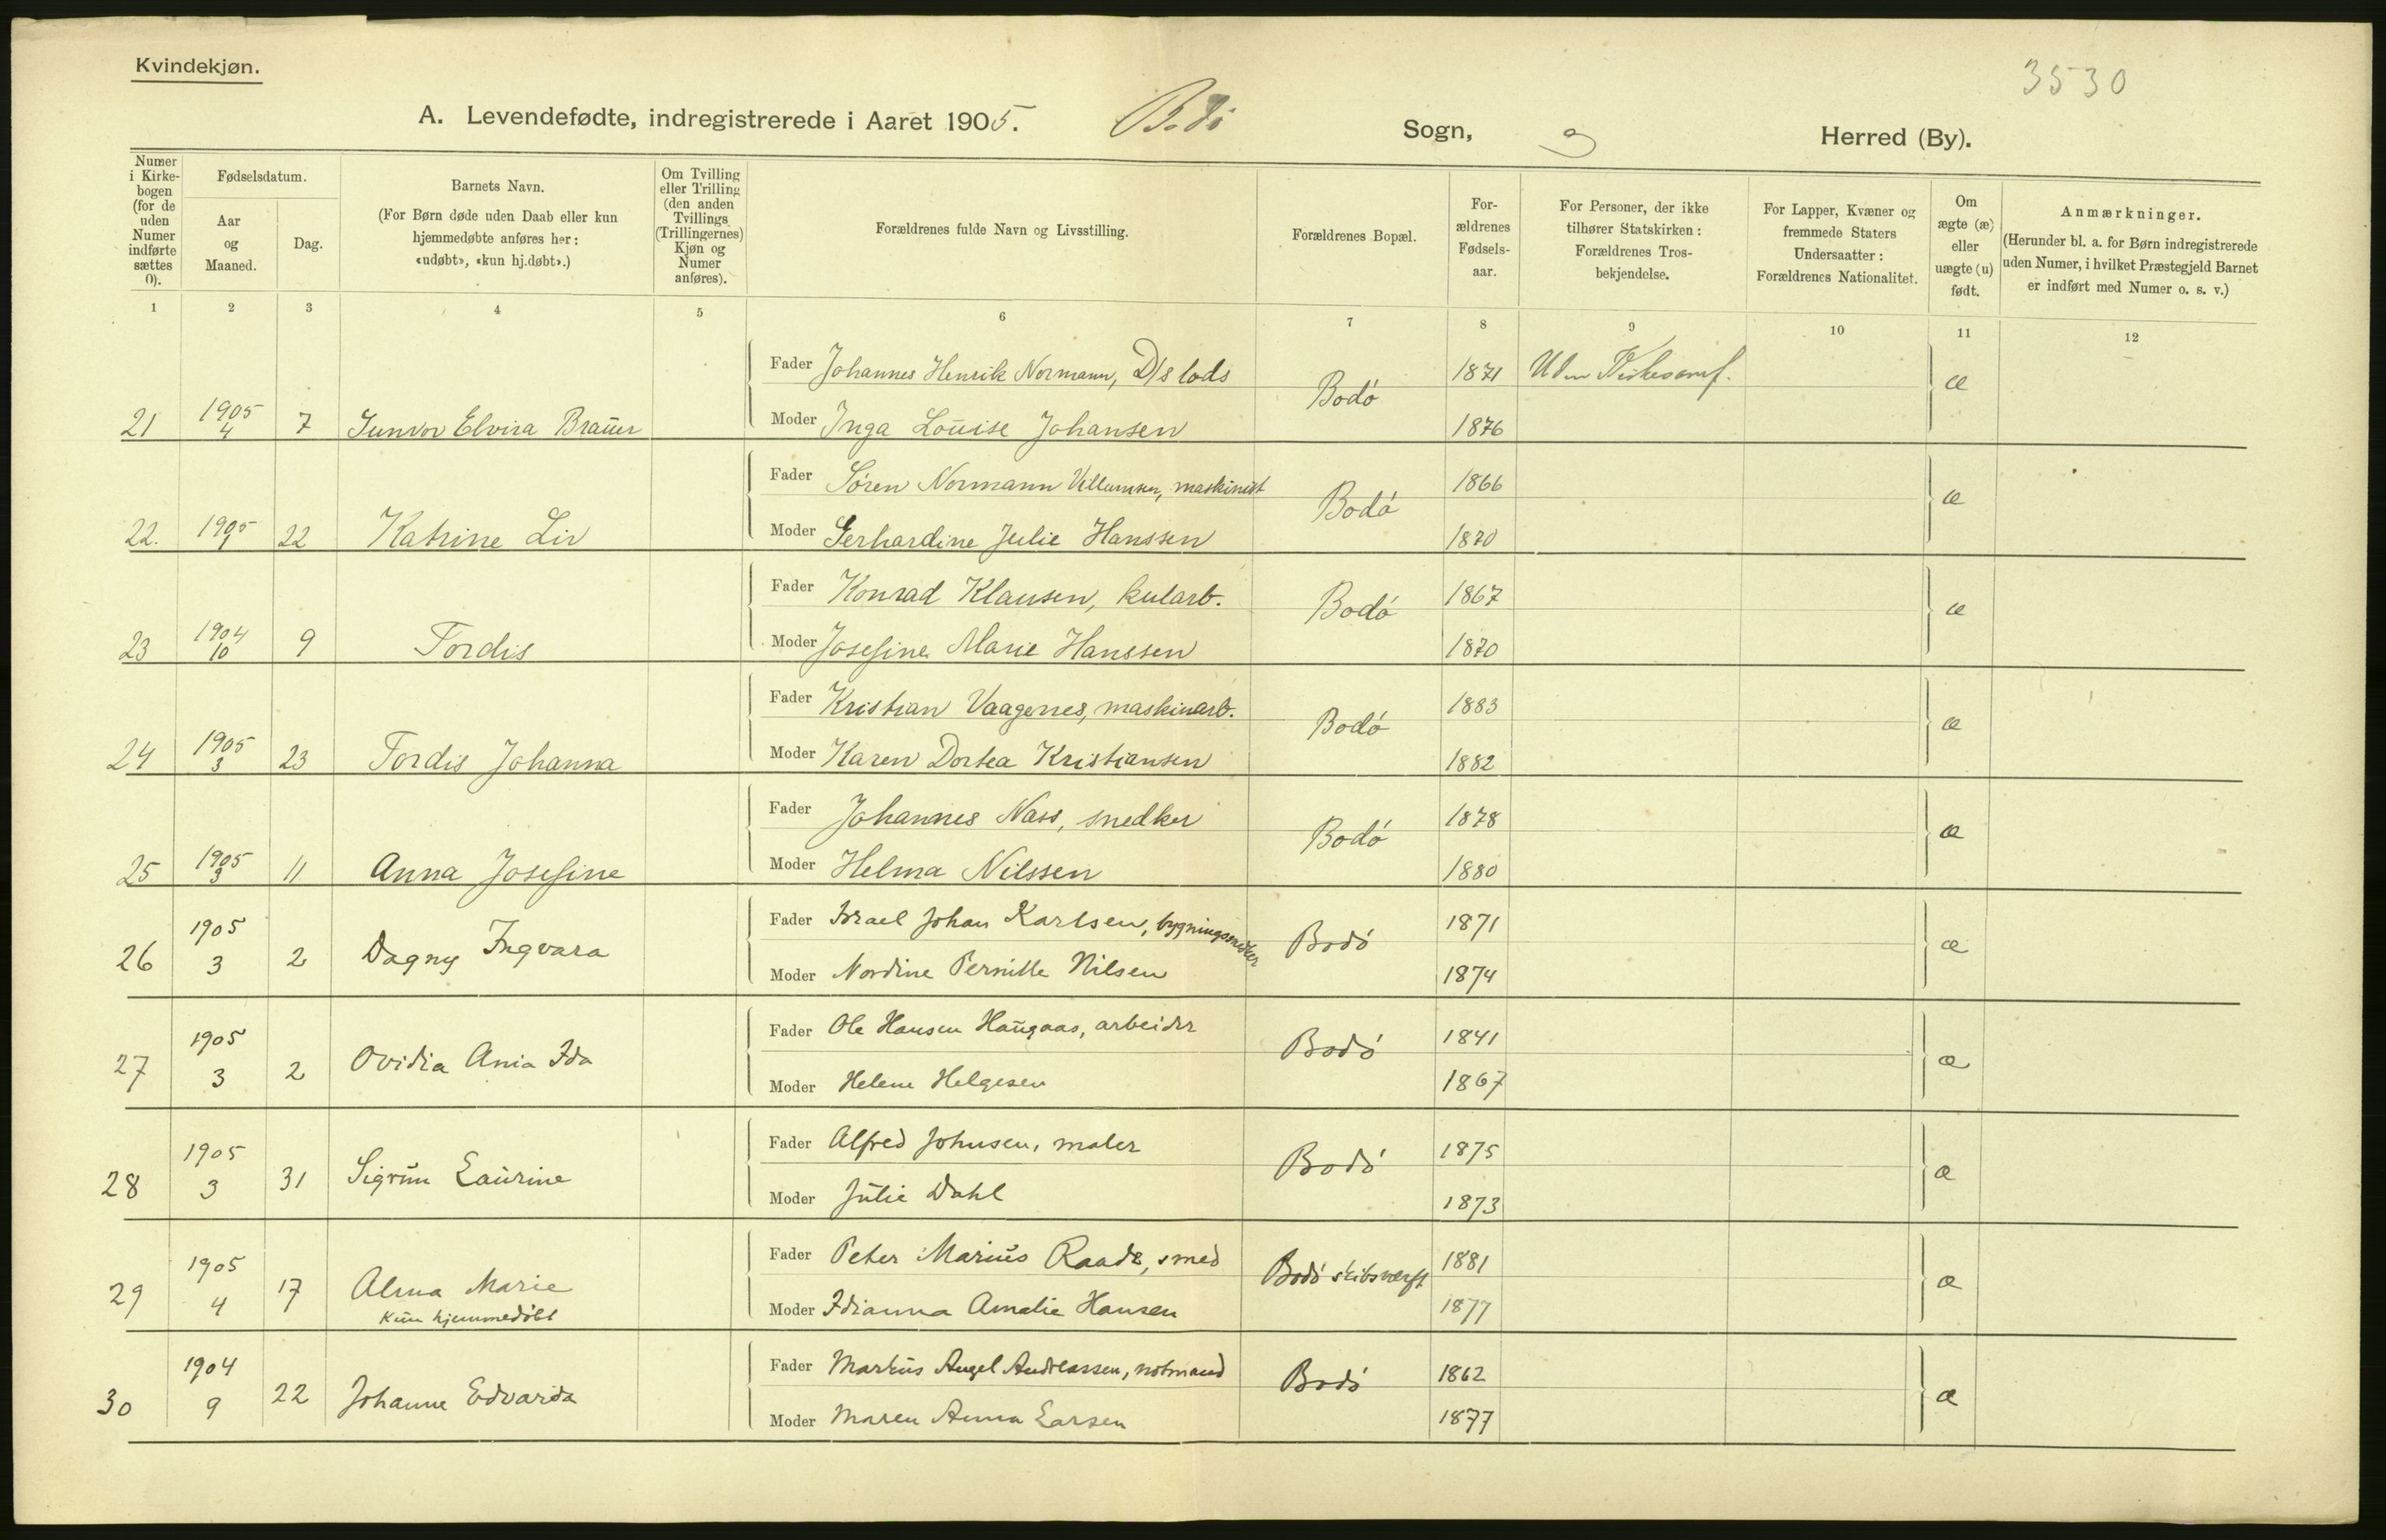 Kvindekjøn.
3530
A. Levendefødte, indregistrerede i Aaret 1905. Bodø Sogn, Herred (By).
Numer i Kirkebogen (for de uden Numer indførte sættes 0).
Fødselsdatum.
Aar og Maaned.
Dag.
Barnets Navn.
(For Børn døde uden Daab eller kun hjemmedøbte anføres her: «udøbt», «kun hj.døbt».)
Om Tvilling eller Trilling (den anden Tvillings (Trillingernes) Kjøn og Numer anføres).
Forældrenes fulde Navn og Livsstilling.
Forældrenes Bopæl.
Forældrenes Fødselsaar.
For Personer, der ikke tilhører Statskirken: Forældrenes Trosbekjendelse.
For Lapper, Kvæner og fremmede Staters Undersaatter: Forældrenes Nationalitet.
Om ægte (æ) eller uægte (u) født.
Anmærkninger.
(Herunder bl. a. for Børn indregistrerede uden Numer, i hvilket Præstegjeld Barnet er indført med Numer o. s. v.)
1 2 3 4 5 6 7 8 9 10 11 12
Fader Johannes Henrik Normann, D/s lods 1871
21 1905 4 7 Gunvor Elvira Braüer Bodø æ
Moder Inga Loüise Johansen 1876
Fader Sören Normann Villumsen, maskinist 1866
22. 1905 22 Katrine Liv Bodø æ
Moder Gerhardine Julie Hanssen 1870
Fader Konrad Klausen, kularb. 1867
23 1904 10 9 Tordis Bodø æ
Moder Josefine Marie Hanssen 1870
Fader Kristian Vaagenes, maskinarb. 1883
24 1905 3 23 Tordis Johanna Bodø æ
Moder Karen Dortea Kristiansen 1882
Fader Johannes Nass, snedker 1878
25 1905 3 11 Anna Josefine Bodø æ
Moder Helma Nilssen 1880
Fader Israel Johan Karlsen, bygningssnedker 1871
26 1905 3 2 Dagny Ingvara Bodø æ
Moder Nordine Pernille Nilsen 1874
Fader Ole Hansen Haügaas, arbeider 1841
27 1905 3 2 Ovidia Ania Ida Bodø æ
Moder Helene Helgesen 1867
Fader Alfred Johnsen, maler 1875
28 1905 3 31 Sigrün Laürine Bodø æ
Moder Jülie Dahl 1873
Fader Peter Mariüs Raade, smed 1881
29 1905 4 17 Alma Marie Bodø skibsverft æ
Kün hjemmedøbt
Moder Idianna Amalie Hansen 1877
Fader Marküs Angel Andreassen, notmand 1862
30 1904 9 22 Johanne Edvarda Bodø æ
Moder Maren Anna Larsen 1877